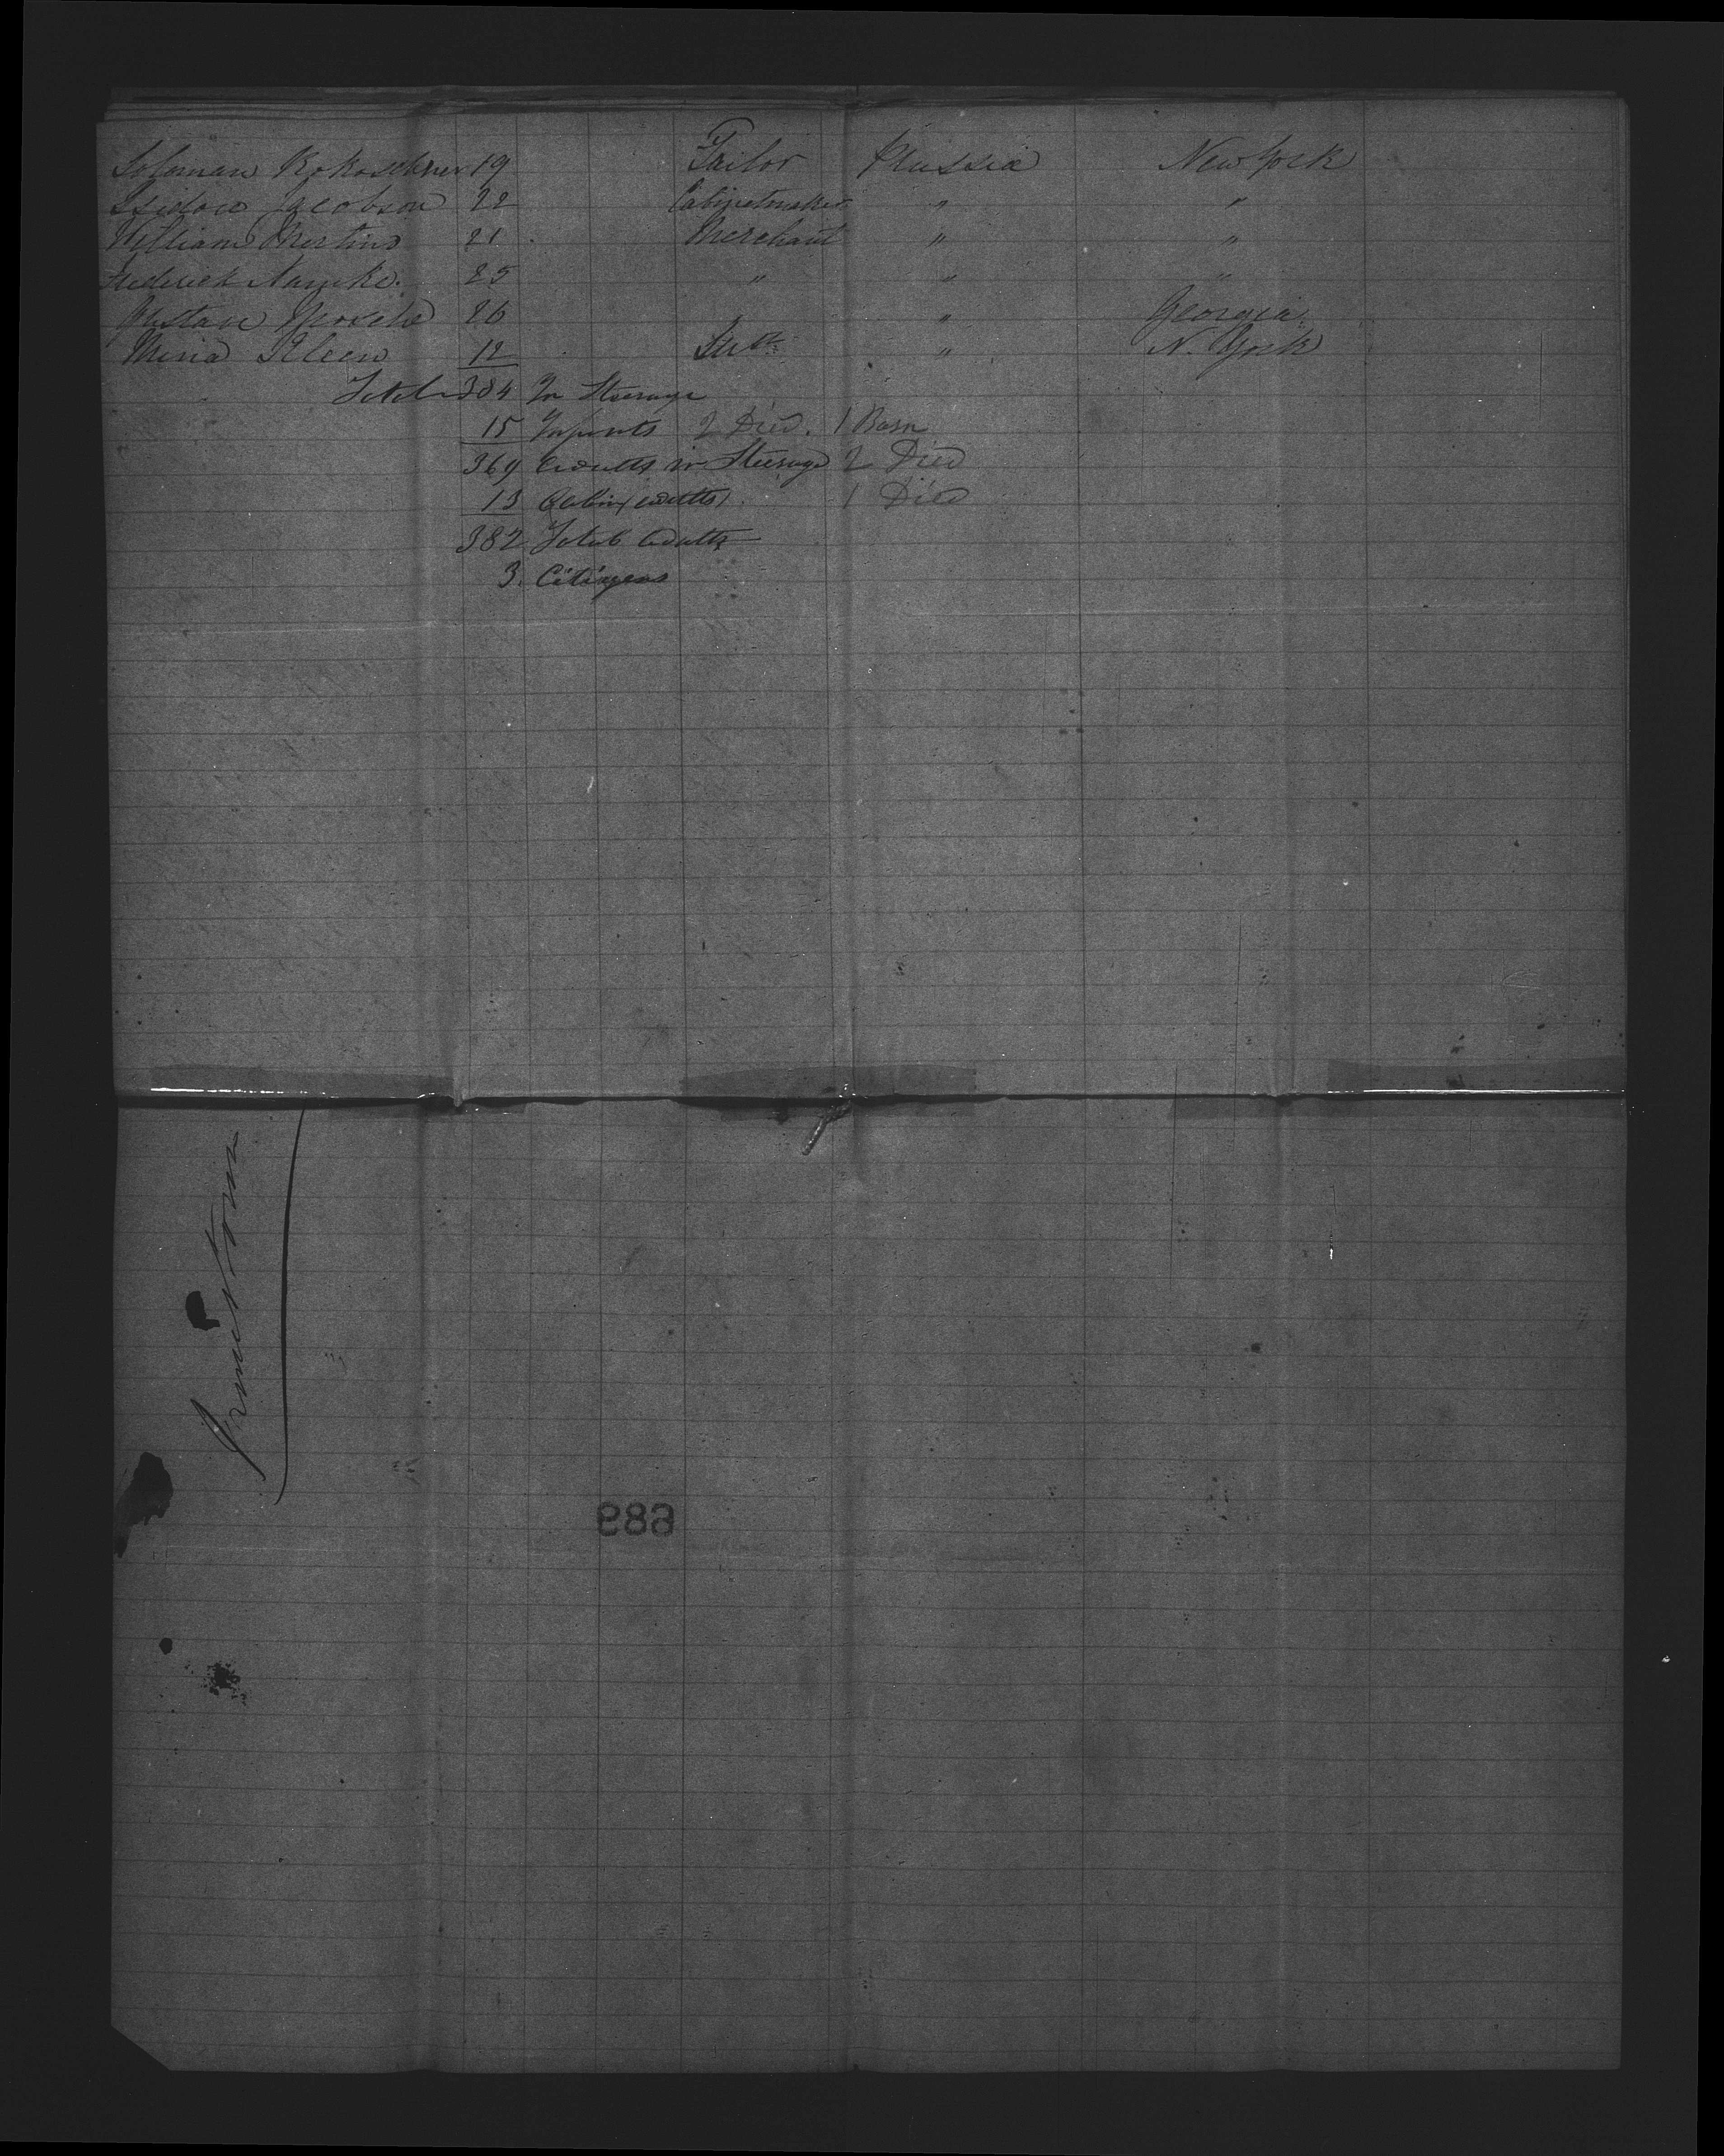 Soloman Kokoschner 19 Tailor Prussia New York
Isidore Jacobson 22 Cabinetmaker " "
William Mertins 21 Merchant " "
Frederick 25 " " "
Gustave 26 " " Georgia
Mina Kleen 12 " N. York
Total 384 In Steerage
15 Infants 2 Died. 1 Born
369 Adults in Steerage 2 Died
13 Cabin (adults) 1 Died
382 Total Adults
3. Citizens
689